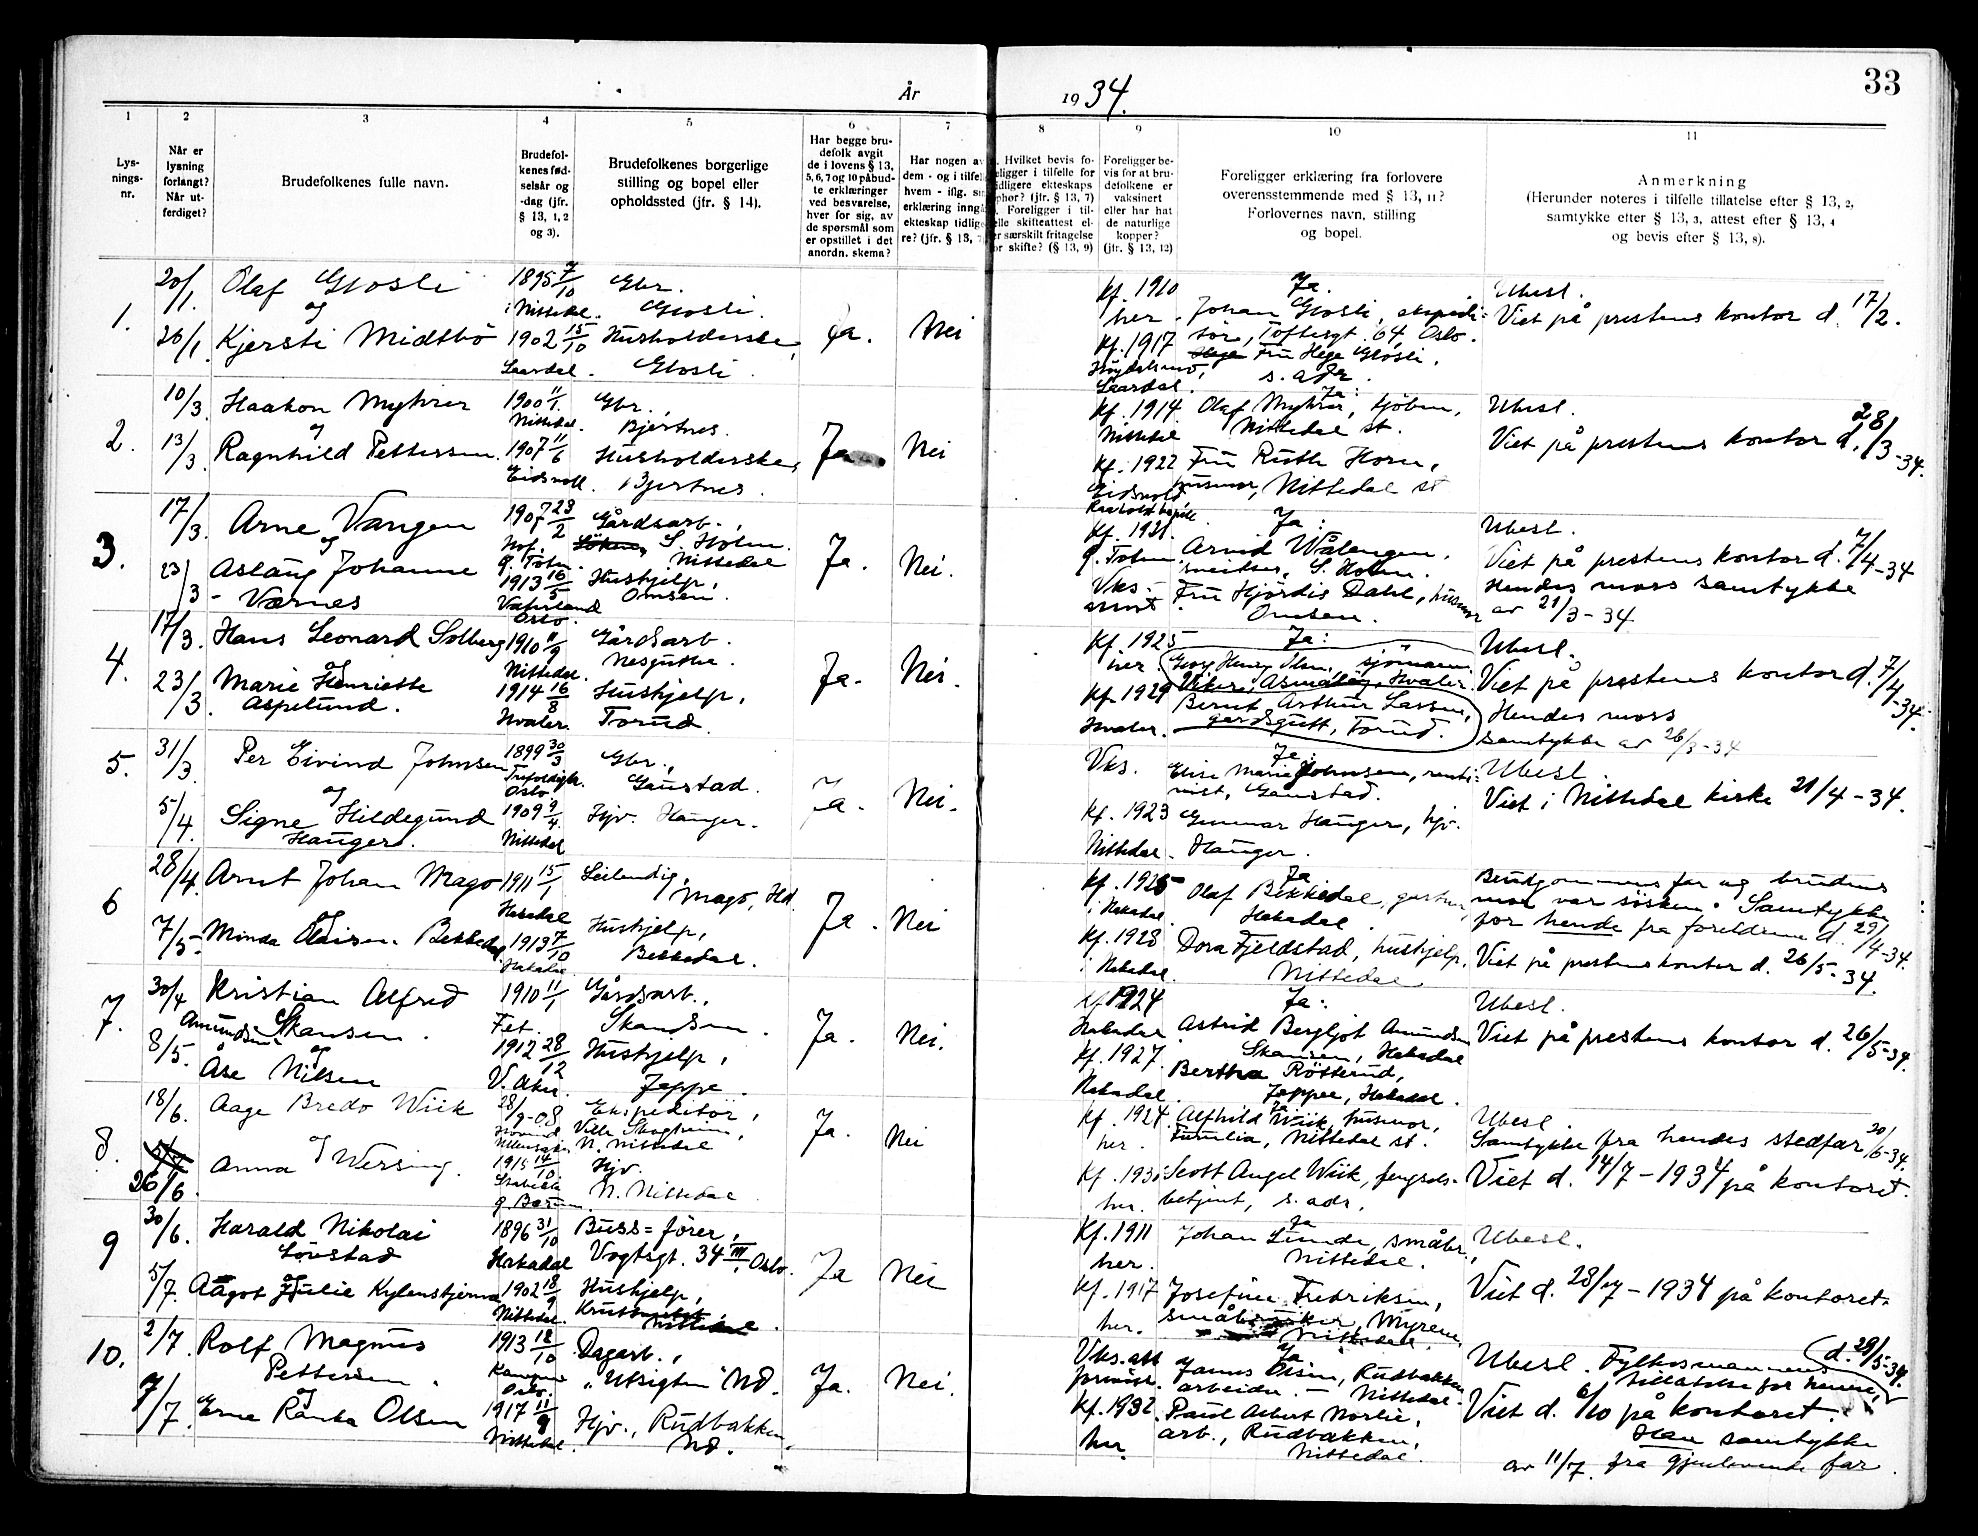 33
År 1934.
1
Lysningsnr.
2
Når er lysning forlangt? Når utferdiget?
3
Brudefolkenes fulle navn.
4
Brudefolkenes fødselsår og -dag (jfr. § 13, 1, 2 og 3).
5
Brudefolkenes borgerlige stilling og bopel eller opholdssted (jfr. § 14).
6
Har begge brudefolk avgit de i lovens § 13, 5, 6, 7 og 10 påbudte erklæringer ved besvarelse, hver for sig, av de spørsmål som er opstillet i det anordn. skema?
7
Har nogen av dem - og i tilfelle hvem - iflg.
erklæring inngå
ekteskap tidlige
re? (jfr. § 13, 7
8
Hvilket bevis fo-
religger i tilfelle for
tidligere ekteskaps
ophør? (jfr. § 13, 7)
Foreligger i til-
felle skifteattest el-
ler særskilt fritagelse
for skifte? (§ 13, 9)
9
Foreligger bevis for at brudefolkene er vaksinert eller har hat de naturlige kopper? (jfr. § 13, 12)
10
Foreligger erklæring fra forlovere overensstemmende med § 13, 11? Forlovernes navn, stilling og bopel.
11
Anmerkning
(Herunder noteres i tilfelle tillatelse efter § 13, 2, samtykke efter § 13, 3, attest efter § 13, 4 og bevis efter § 13, 8).
1.
20/1.
26/1
Olaf Glosli
og
Kjersti Midtbø
1895 7/10
i Nittedal.
1902 15/10
Laardal.
Gbr.
Glosli.
Husholderske,
Glosli.
Ja.
Nei
Kf. 1910
her.
Kf. 1917
Høydalsmo,
Laardal.
Ja.
Johan Glosli, ekspedi-
tør, Toftesgt. 64, Oslo.
Fru Hege Glosli,
s. adr.
Ubesl.
Viet på prestens kontor d. 17/2.
2.
10/3.
13/3
Haakon Myhrer
og
Ragnhild Pettersen.
1900 11/1.
Nittedal.
1907 11/6
Eidsvoll.
Gbr.,
Bjertnes.
Husholderske,
Bjertnes.
Ja
Nei
Kf. 1914
Nittedal
Kf. 1922
Eidsvold
Ja:
Olaf Myhrer,
Nittedal st.
Fru Ruth Horn,
husmor, Nittedal st
Ubesl.
Viet på prestens kontor d. 28/3-34.
3.
17/3.
23/3
Arne Vangen
og
Aslaug Johanne
- Værnes
1907 23/2
Hof.
Ø. Toten.
1913 16/5
Vaterland
Oslo.
Gårdsarb.,
S. Holm.
Nittedal
Hushjelp,
Omsen.
Ja.
Nei.
Kf. 1921.
Ø. Toten
Vks.-
attest
Ja:
Arvid Wålengen,
sveitser, S. Holm.
Fru Hjördis Dahl, husmor
Omsen.
Ubesl.
Viet på prestens kontor d. 7/4-34
Hendes mors samtykke
av 21/3-34.
4.
17/3.
23/3.
Hans Leonard Solberg
og
Marie Henriette
Aspelund.
1910 11/9
Nittedal.
1914 16/8
Hvaler.
Gårdsarb.
Nesgutua.
Hushjelp,
Torud.
Ja.
Nei.
Kf. 1925
her.
Kf. 1929
Hvaler.
Ja:
Georg Henry Olsen, sjömann
Viker, Asmaløy, Hvaler.
Bernt Arthur Larsen,
gårdsgutt, Torud.
Ubesl.
Viet på prestens kontor d. 7/4-34.
Hendes mors
samtykke av 26/3-34
5.
31/3.
5/4.
Per Eivind Johnsen
og
Signe Hildegund
Hauger.
1899 30/3
Trefoldigh.
Oslo
1909 9/4.
Nittedal
Gbr.,
Gaustad.
Hjv. Hauger.
Ja.
Nei.
Vks.
Kf. 1923
Nittedal.
Ja:
Elise Marie Johnsen, renti-
nist, Gaustad.
Gunnar Hauger, hjv.
Hauger.
Ubesl.
Viet i Nittedal kirke 21/4-34.
6
28/4.
7/5-
Arnt Johan Magö
og
Minda Olaisen Bekkedal
1911 15/1
Hakadal
1913 7/10
Hakadal
Leilendig,
Magö, Hd.
Hushjelp,
Bekkedal.
Ja.
Nei
Kf. 1925
i Hakadal
Kf. 1928
i Hakadal.
Ja
Olaf Bekkedal,
Hakadal.
Dora Fjeldstad, hushjelp,
Nittedal
Brudgommens far og brudens
mor var søsken. Samtykke
for hende fra foreldrene d. 29/4-34.
Viet på prestens kontor d. 26/5-34.
7.
30/4
8/5.
Kristian Alfred
Amundsen Skansen.
og
Åse Nilsen
1910 11/1
Fet.
1912 28/12
V. Aker.
Gårdsarb.,
Skansen.
Hushjelp,
Jeppe.
Ja.
Nei.
Kf 1924
Hakadal
Kf. 1927.
Hakadal.
Ja:
Astrid Bergljot Amundsen
Skansen, Hakadal
Bertha Rötterud,
Jeppe, Hakadal.
Ubesl.
Viet på prestens kontor d. 26/5-34.
8.
18/6.
26/6.
Aage Bredo Wiik
og
Anna Wersing.
28/9-08
Hovind
Ullensaker
1915 14/10
Ø. Bærum.
Ekspeditör,
Villa Skogheim,
N. Nittedal
Hjv.
N. Nittedal.
Ja.
Nei
Kf. 1924.
her.
Kf. 1930
her.
Ja
Alfhild Wiik, husmor,
Furulia, Nittedal st.
Scott Angel Wiik, fengsels-
betjent, s. adr.
Ubesl.
Samtykke fra hendes stedfar 20/6-34.
Viet d. 14/7-1934 på kontoret.
9
30/6.
5/7.
Harald Nikolai
Lövstad
og
Aagot Julie Kylenstjerna
1896 31/10
Hakadal
1902 18/9
Nittedal.
Buss=förer,
Vogtsgt. 34 III, Oslo.
Hushjelp,
Nittedal.
Ja
Nei
Kf. 1911
her.
Kf. 1917
her.
Ja
Johan Lunde, småbr.,
Nittedal.
Josefine Fredriksen,
småbruker, Myrene,
Nittedal.
Ubesl.
Viet d. 28/7-1934 på kontoret.
10.
2/7.
7/7.
Rolf Magnus
Pettersen.
og
Erna Ranka Olsen
1913 18/10
Kampen
Oslo.
1917 11/9
Nittedal.
Dagarb.,
"Utsigten" Nd.
Hjv., Rudbakken,
Nd.
Ja.
Nei.
Vks. att
Kf. 1932.
her.
Ja
Olsen, Rudbakken
arbeider - Nittedal.
Paul Albert Norlie,
arb., Rudbakken,
Nittedal.
Ubesl. Fylkesmannens d. 29/5-34.
tillatelse for henne,
Viet d. 6/10 på kontoret.
Hans samtykke
av 11/7. fra gjenlevende far.